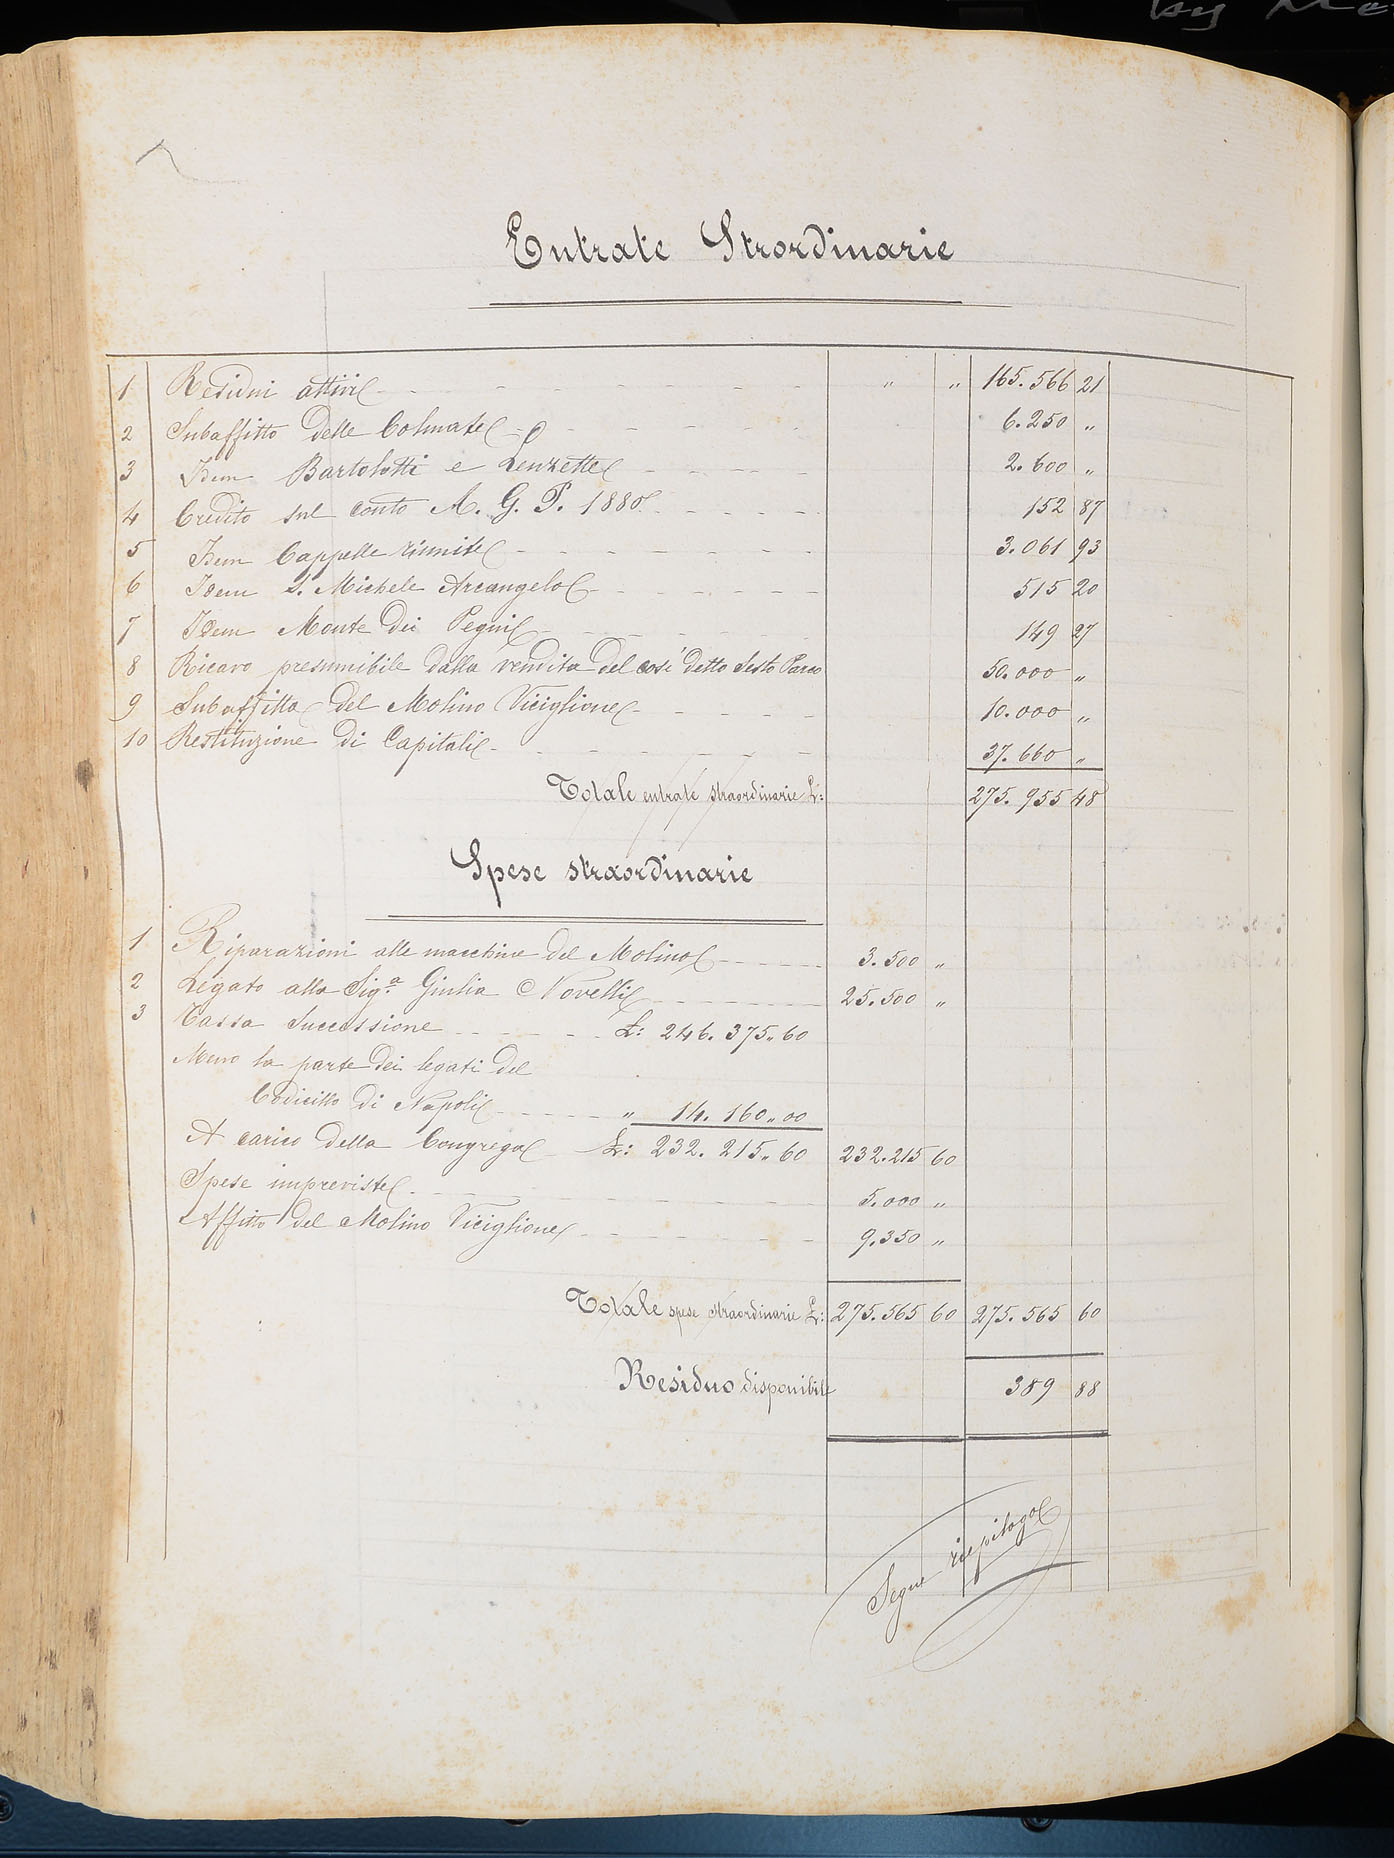 Entrate Strordinarie
1 Residui attivi " " 165.566 21
2 Subaffitto delle Colmate 6.250 "
3 Idem Bartolotti e Lenzette 2.600 "
4 Credito sul conto A. G. P. 1880 152 87
5 Idem Cappelle riunite 3.061 93
6 Idem S. Michele Arcangelo 515 20
7 Idem Monte dei Pegni 149 27
8 Ricavo presumibile dalla vendita del così detto Sesto Parco 50.000 "
9 Subaffitto del Molino Viciglione 10.000 "
10 Restituzione di Capitali 37.660 "
Totale entrate straordinarie £: 275.955 48
Spese straordinarie
1 Riparazioni alle macchine del Molino 3.500 "
2 Legato alla Sig.a Giulia Novelli 25.500 "
3 Tassa Successione £: 246.375.,60
Meno la parte dei legati del
Codicillo di Napoli " 14.160.,00
A carico della Congrega £: 232.215.,60 232.215 60
Spese impreviste 5.000 "
Affitto del Molino Viciglione 9.350 "
Totale spese straordinarie £: 275.565 60 275.565 60
Residuo disponibile 389 88
Segue riepilogo